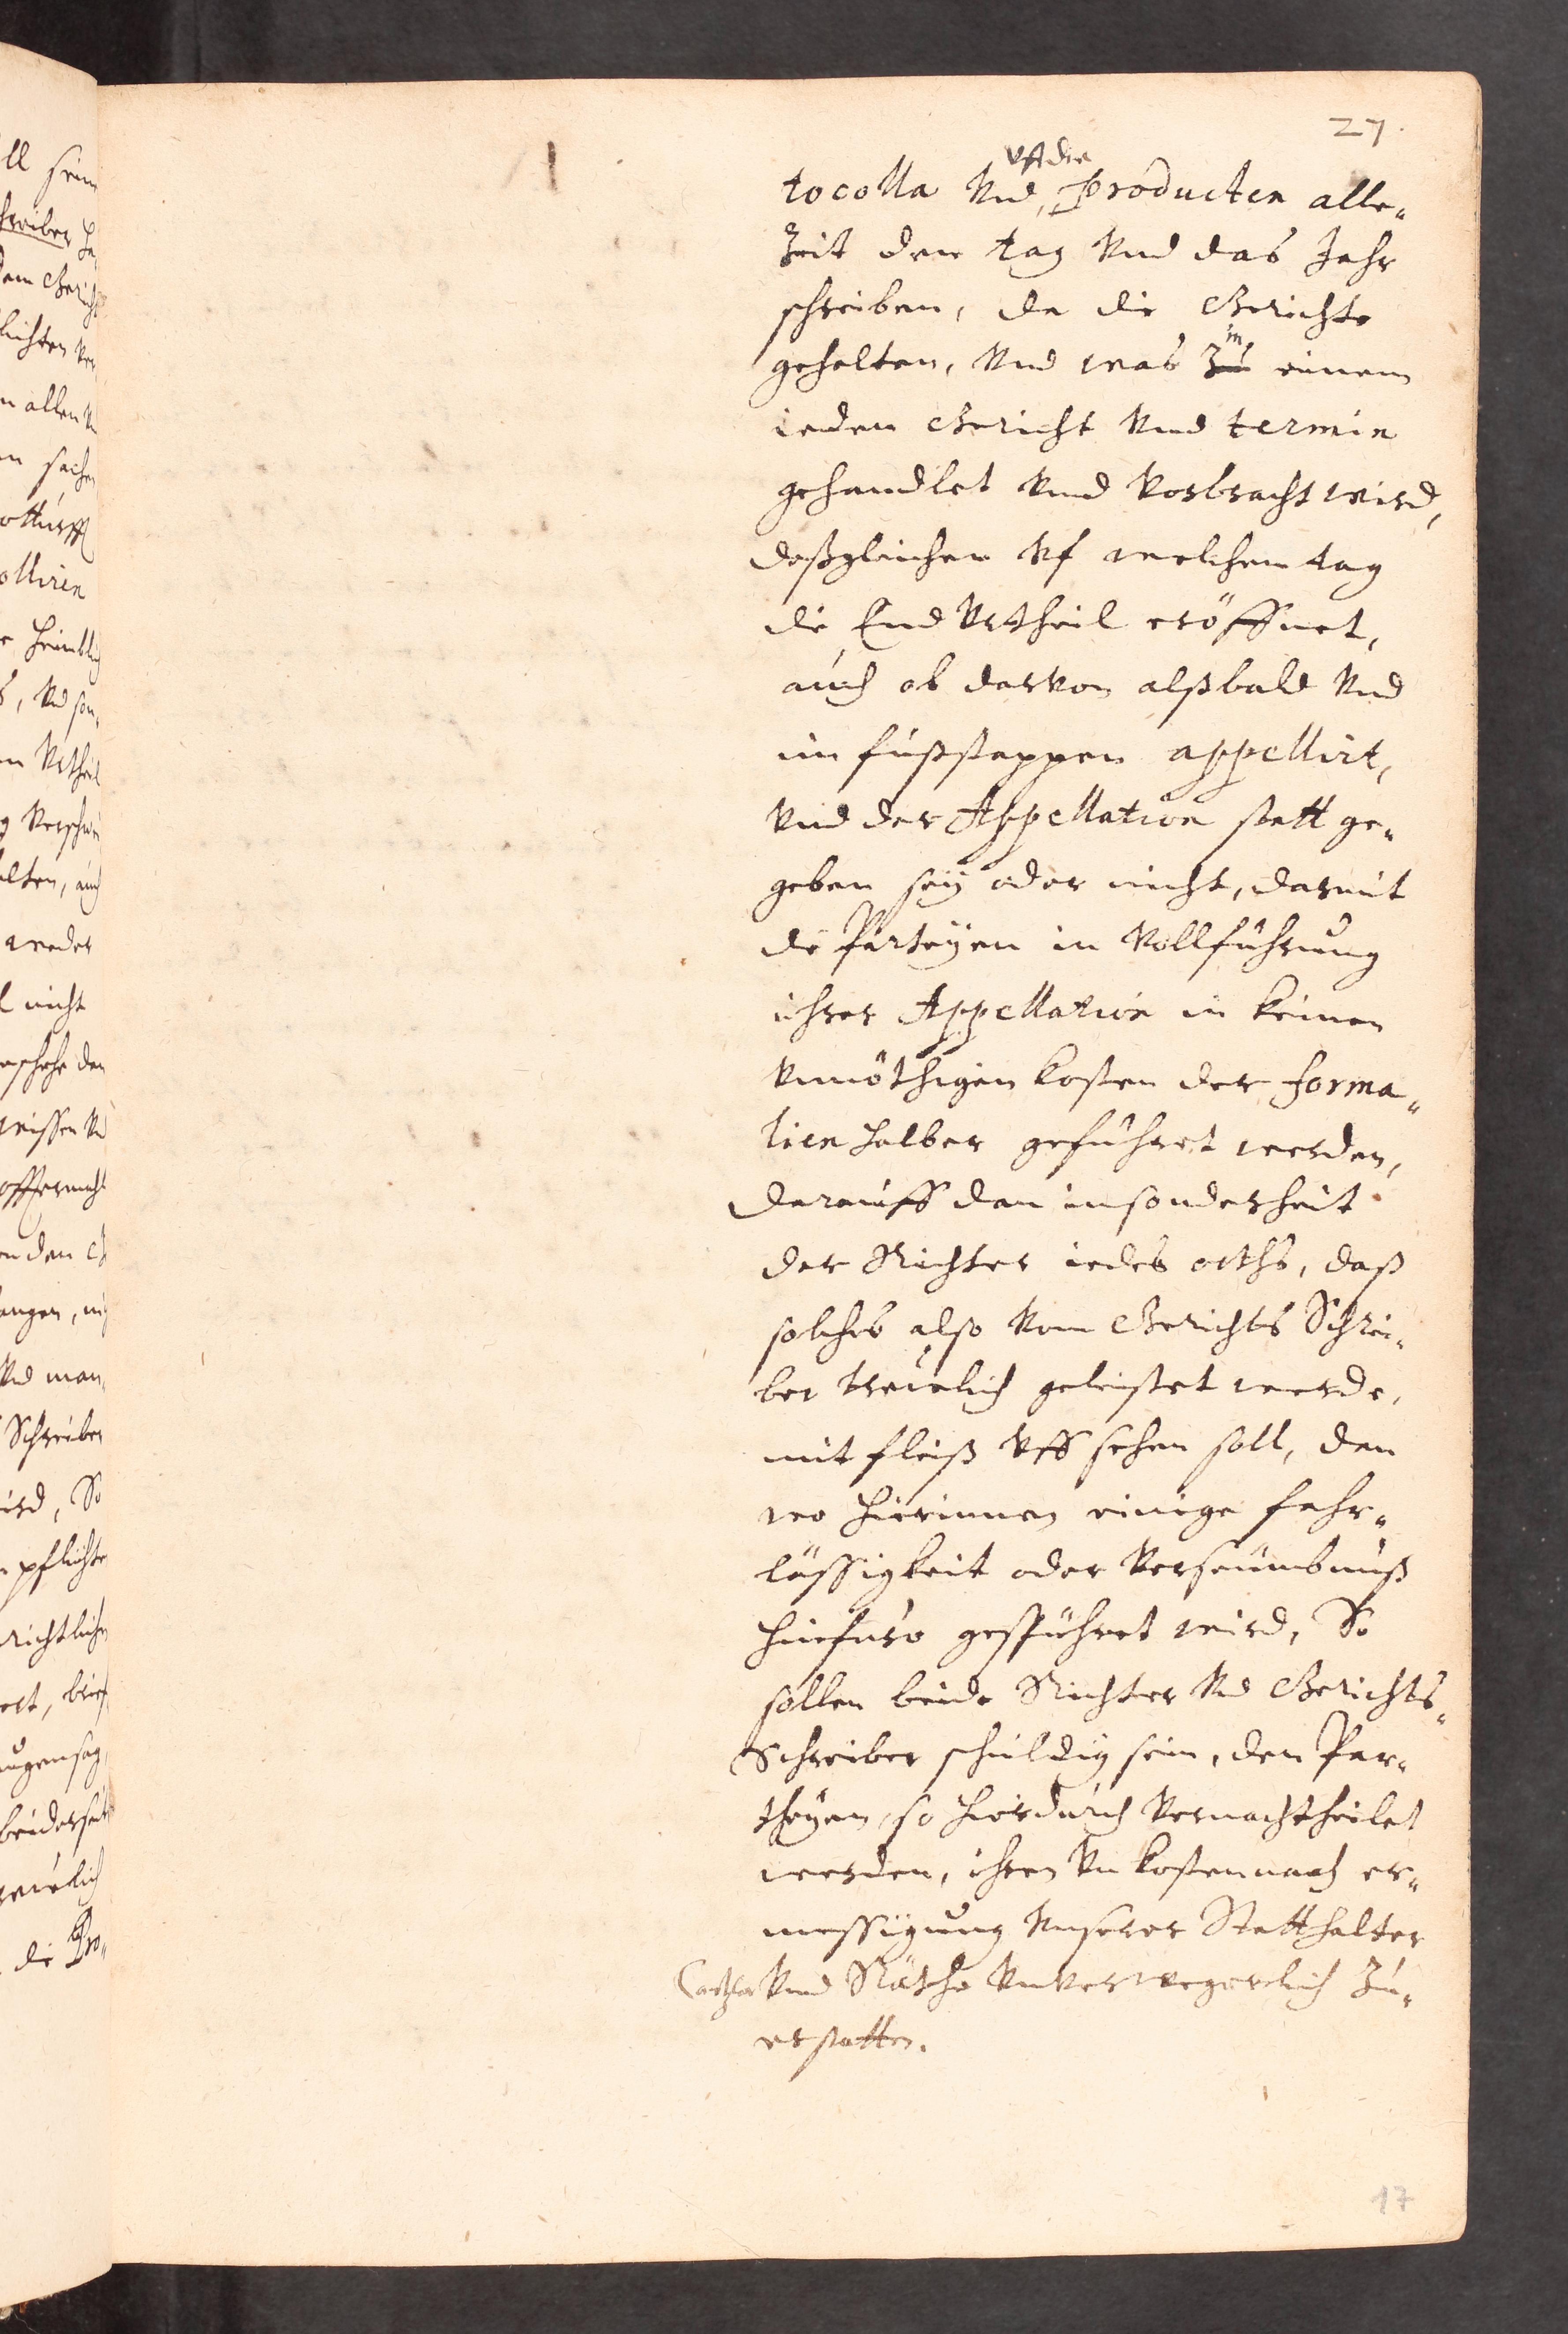 27.
vff die
tocolla Vnd Producten alle„
Zeit den tag Vnd das Jahr
schreiben, da die Gerichte
gehalten, Vnd was in
Zu einem
ieden Gericht Vnd termin
gehandlet Vnd Vorbracht wird,
deßgleichen Vf welchem tag
die End Vrtheil eröffnet,
auch ob darvon alßbald Vnd
im fußstappen appellirt,
Vnd der Appellation statt ge„
geben seÿ oder nicht, darmit
die Parteÿen in Vollführung
ihrer Appellation in keinen
Vnnöthigen kosten der forma„
lien halber geführet werden,
darauff dan insonderheit
der Richter iedes orths, daß
solches also Vom Gerichts Schrei„
ber treulich geleistet werde,
mit fleiß Vff sehen soll, den
wo hierinnen einige fahr„
lässigkeit oder Verseumbnuß
hinfuro gespühret wird, So
sollen beide Richter Vnd Gerichts„
Schreiber schuldig sein, den Par„
theÿen, so hierdurch Vernachtheilet
werden, ihren Vnkosten nach er„
messigung Vnserer Statthalter
Cantzler Vnd Räthe Vnverwegerlich Zu„
erstatten.
17